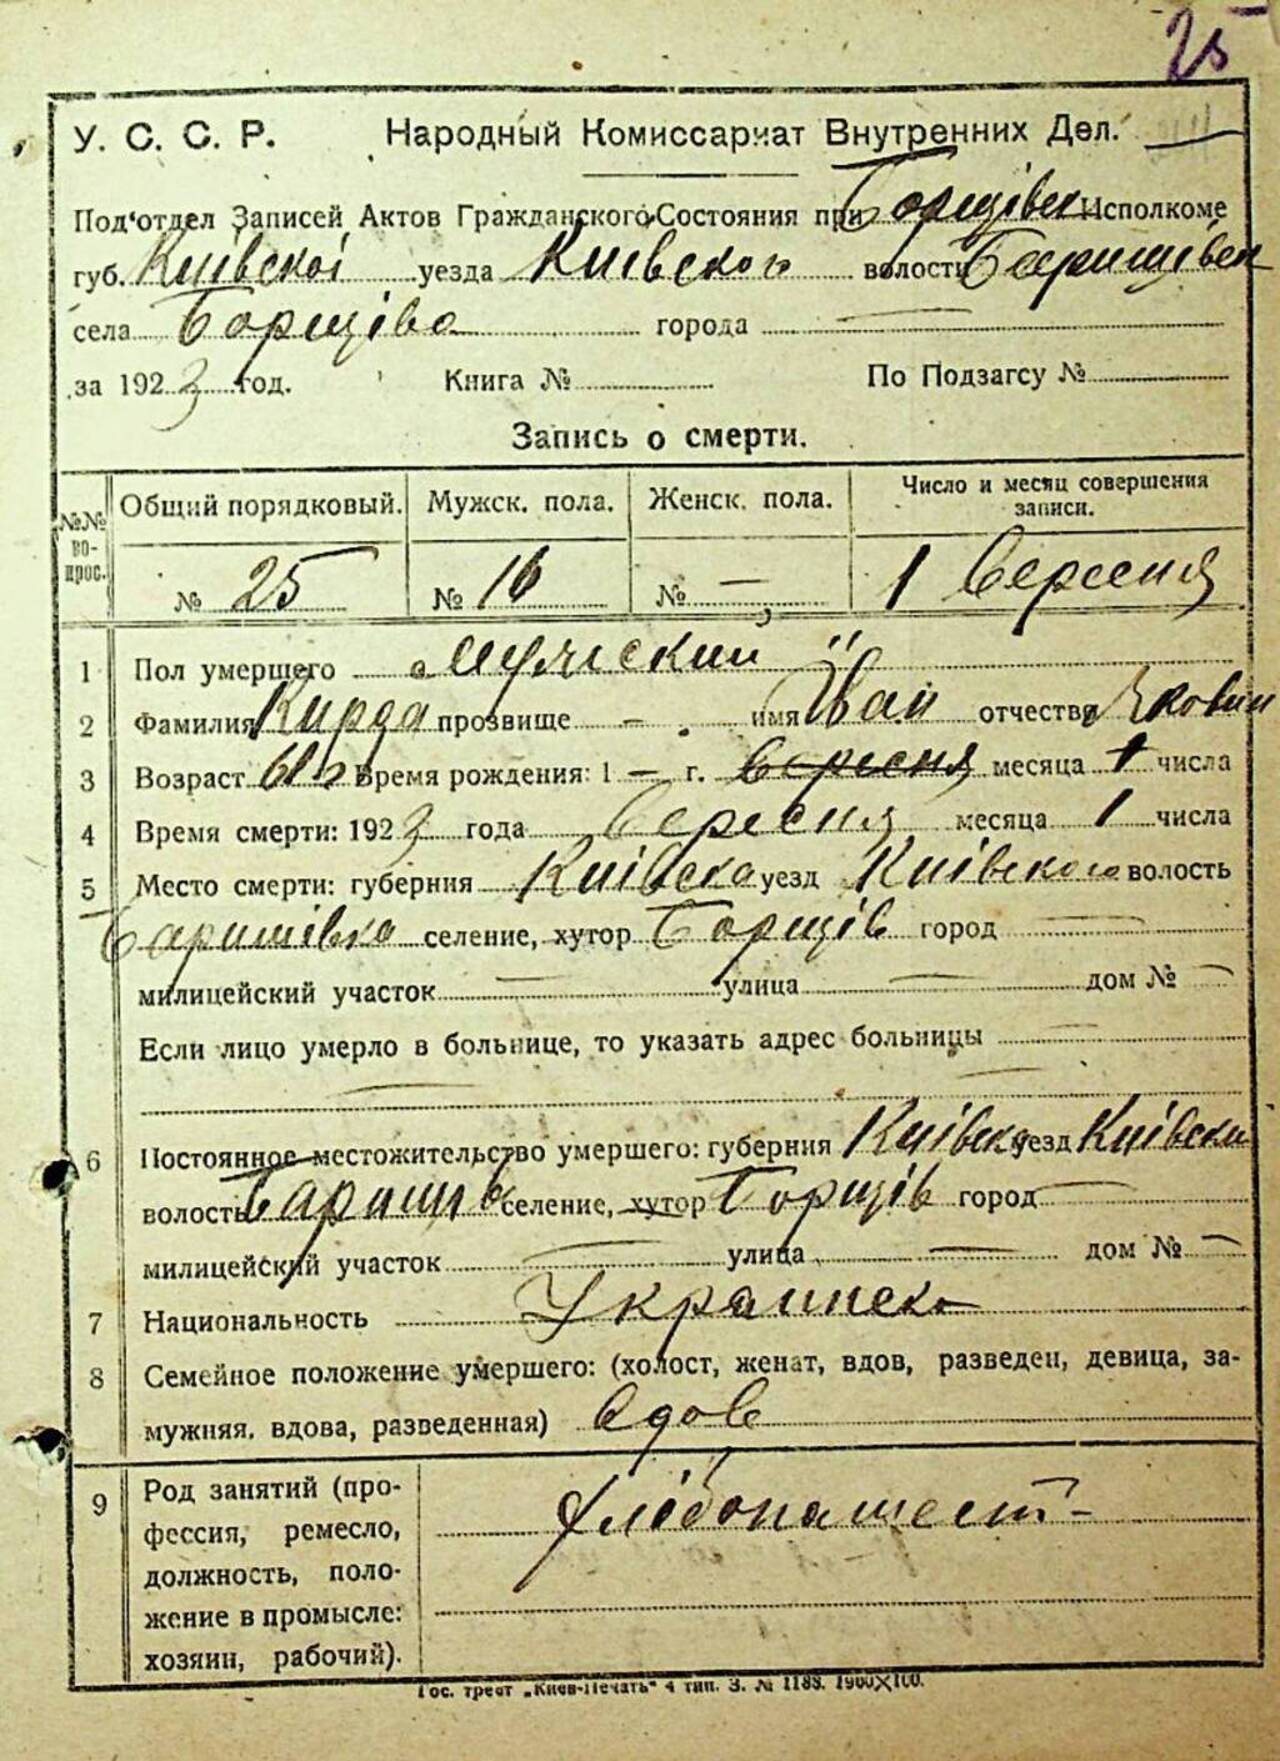 25
У. С. С. Р. Народный Комиссариат Внутренних Дел.
Под'отдел Записей Актов Гражданского Состояния при Борщівск Исполкоме
губ. Київскої уезда Київского волости Баришівск
села Борщіва города —
за 1923 год. Книга № По Подзагсу №
Запись о смерти.
№№ во-прос. Общий порядковый. Мужск. пола. Женск. пола. Число и месяц совершения записи.
№ 25 № 16 № — 1 Вересня
1 Пол умершего мужский
2 Фамилия Кирда прозвище — имя Іван отчество Якович
3 Возраст Время рождения: 1 — г. вересня месяца 1 числа
4 Время смерти: 1923 года Вересня месяца 1 числа
5 Место смерти: губерния Київска уезд Київского волость
Баришівка селение, хутор Борщів город —
милицейский участок — улица — дом № —
Если лицо умерло в больнице, то указать адрес больницы —
6 Постоянное местожительство умершего: губерния Київска уезд Київски
волость Баришів селение, хутор Борщів город —
милицейский участок — улица — дом № —
7 Национальность Украинск
8 Семейное положение умершего: (холост, женат, вдов, разведен, девица, за-
мужняя, вдова, разведенная) вдов
9 Род занятий (про-
фессия, ремесло,
должность, поло-
жение в промысле:
хозяин, рабочий). Хлібопашест-
Гос. трест „Киев-Печать" 4 тип. З. № 1188. 1960×100.